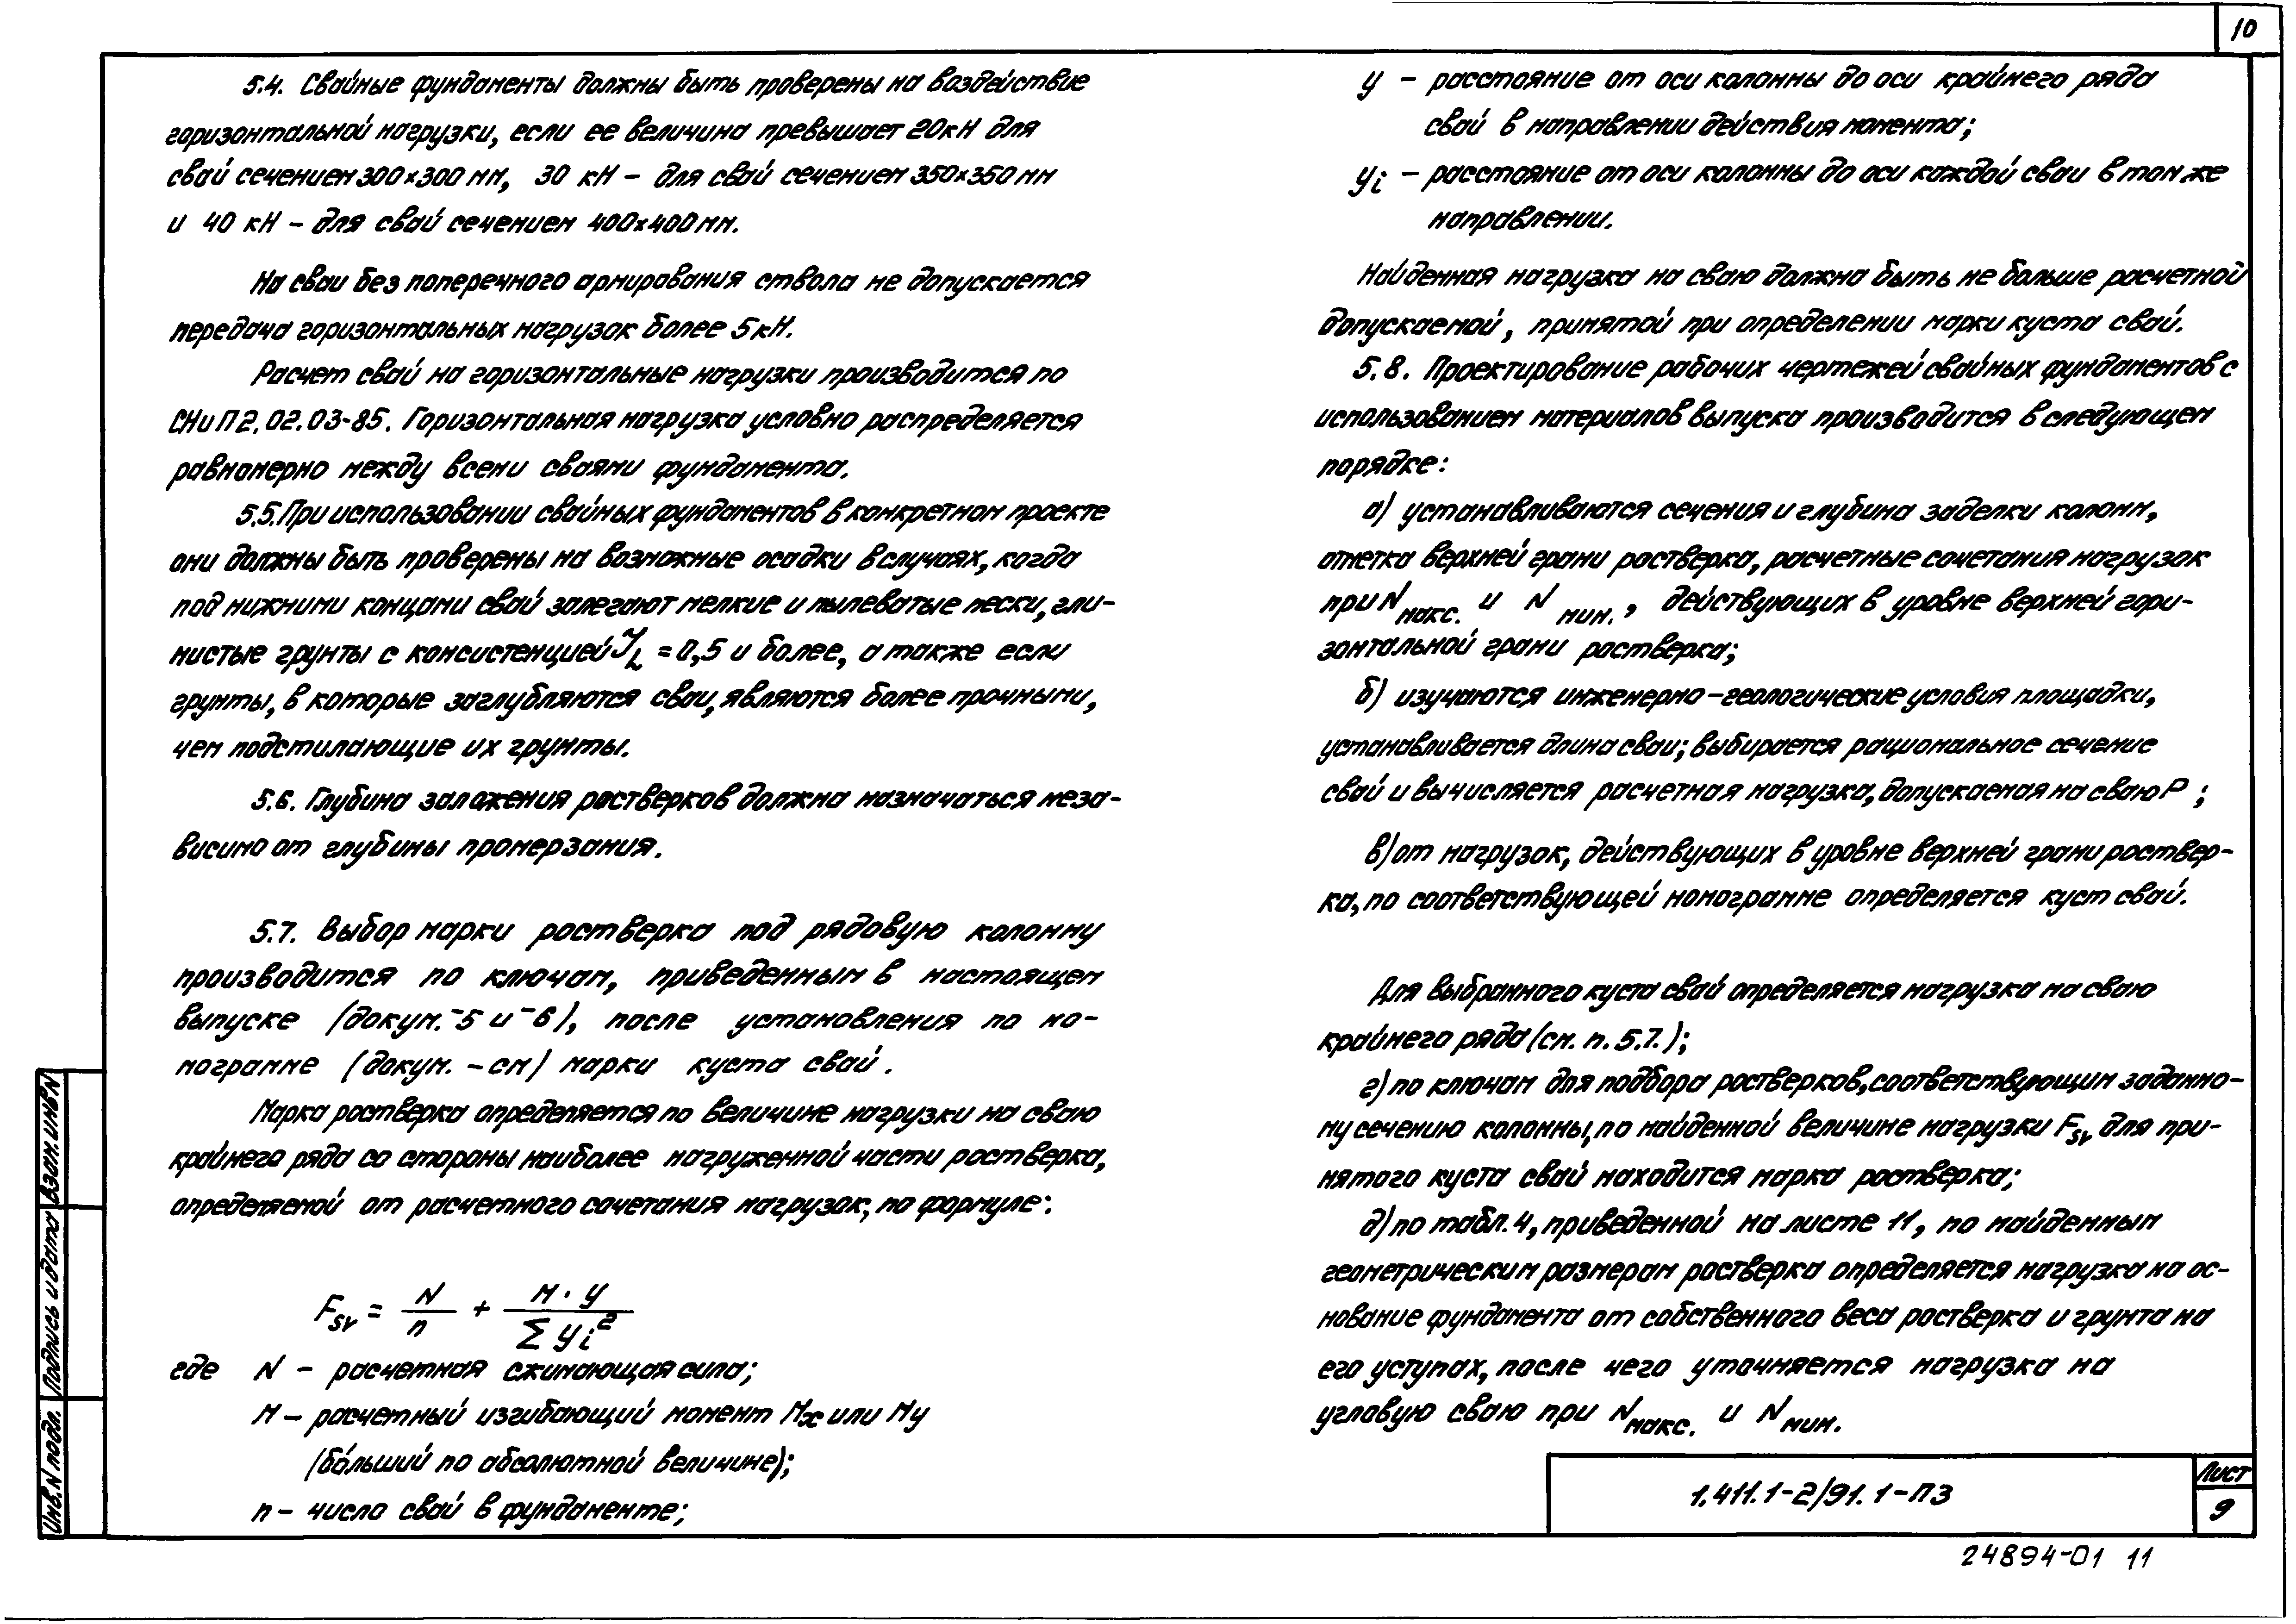 10
5.4. Свайные фундаменты должны быть проверены на воздействие
горизонтальной нагрузки, если ее величина превышает 20кН для
свай сечением 300×300 мм, 30 кН – для свай сечением 350×350 мм
и 40 кН – для свай сечением 400×400 мм.
На сваи без поперечного армирования ствола не допускается
передача горизонтальных нагрузок более 5 кН.
Расчет свай на горизонтальные нагрузки производится по
СНиП 2.02.03-85. Горизонтальная нагрузка условно распределяется
равномерно между всеми сваями фундамента.
5.5. При использовании свайных фундаментов в конкретном проекте
они должны быть проверены на возможные осадки в случаях, когда
под нижними концами свай залегают мелкие и пылеватые пески, гли-
нистые грунты с консистенцией J_L = 0,5 и более, а также если
грунты, в которые заглубляются сваи, являются более прочными,
чем подстилающие их грунты.
5.6. Глубина заложения ростверков должна назначаться неза-
висимо от глубины промерзания.
5.7. Выбор марки ростверка под рядовую колонну
производится по ключам, приведенным в настоящем
выпуске (докум. -5 и -6), после установления по но-
мограмме (докум. -см) марки куста свай.
Марка ростверка определяется по величине нагрузки на сваю
крайнего ряда со стороны наиболее нагруженной части ростверка,
определяемой от расчетного сочетания нагрузок, по формуле:
F_sv = N/n + M·y / Σ y_i²
где N – расчетная сжимающая сила;
M – расчетный изгибающий момент Mx или My
(бо́льший по абсолютной величине);
n – число свай в фундаменте;
y – расстояние от оси колонны до оси крайнего ряда
свай в направлении действия момента;
y_i – расстояние от оси колонны до оси каждой сваи в том же
направлении.
Найденная нагрузка на сваю должна быть не больше расчетной
допускаемой, принятой при определении марки куста свай.
5.8. Проектирование рабочих чертежей свайных фундаментов с
использованием материалов выпуска производится в следующем
порядке:
а) устанавливаются сечения и глубина заделки колонн,
отметка верхней грани ростверка, расчетные сочетания нагрузок
при N макс. и N мин., действующих в уровне верхней гори-
зонтальной грани ростверка;
б) изучаются инженерно-геологические условия площадки,
устанавливается длина сваи; выбирается рациональное сечение
свай и вычисляется расчетная нагрузка, допускаемая на сваю P;
в) от нагрузок, действующих в уровне верхней грани роствер-
ка, по соответствующей номограмме определяется куст свай.
Для выбранного куста свай определяется нагрузка на сваю
крайнего ряда (см. п. 5.7.);
г) по ключам для подбора ростверков, соответствующим заданно-
му сечению колонны, по найденной величине нагрузки F_sv для при-
нятого куста свай находится марка ростверка;
д) по табл. 4, приведенной на листе 11, по найденным
геометрическим размерам ростверка определяется нагрузка на ос-
нование фундамента от собственного веса ростверка и грунта на
его уступах, после чего уточняется нагрузка на
угловую сваю при N макс. и N мин.
Взам. инв N
Подпись и дата
Инв. N подл.
1.411.1-2/91.1-ПЗ
Лист
9
24894-01 11